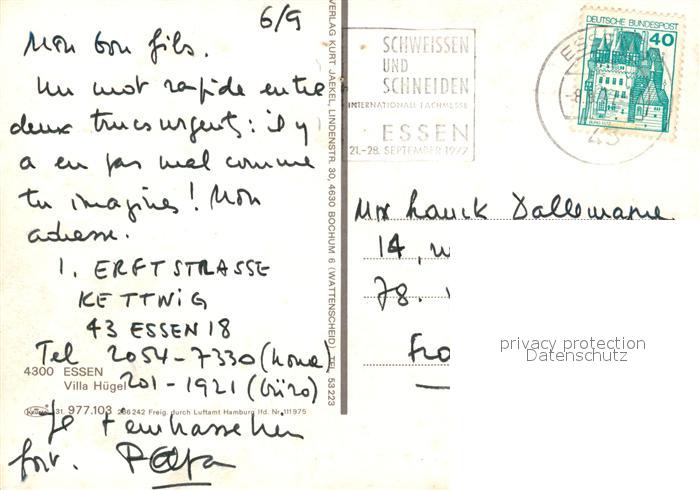 6/9
Mon bon fils.
Un mot rapide entre
deux trucs urgents : il y
a en pas mal comme
tu imagines ! Mon
adresse.
1. ERFTSTRASSE
KETTWIG
43 ESSEN 18
Tel 2054-7330 (home)
201-1921 (büro)
Je t'embrasse bien
fort. Papa
4300 ESSEN
Villa Hügel
31. 977.103 286242 Freig. durch Luftamt Hamburg lfd. Nr. 111975
VERLAG KURT JAEKEL, LINDENSTR. 30, 4630 BOCHUM 6 (WATTENSCHEID) TEL 53223
SCHWEISSEN
UND
SCHNEIDEN
INTERNATIONALE FACHMESSE
ESSEN
21.-28. SEPTEMBER 1977
DEUTSCHE BUNDESPOST
40
43
Dallemagne
14,
78.
privacy protection
Datenschutz